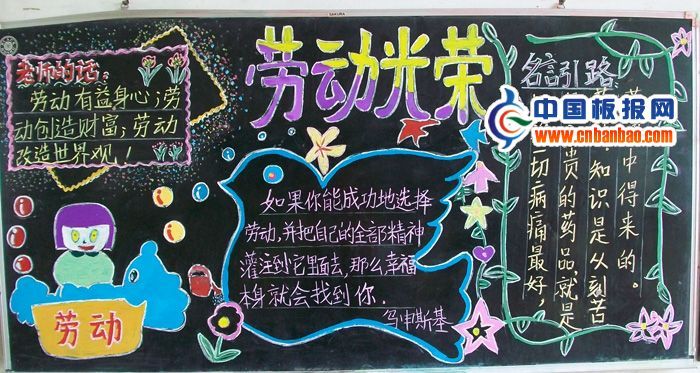 SAKURA
劳动光荣
老师的话:
劳动有益身心;劳
动创造财富;劳动
改造世界观!
劳动
如果你能成功地选择
劳动,并把自己的全部精神
灌注到它里面去,那么幸福
本身就会找到你.
乌申斯基
名言引路
切病痛最好,
贵的药品,就是
知识是从刻苦
中得来的。
中国板报网
www.cnbanbao.com